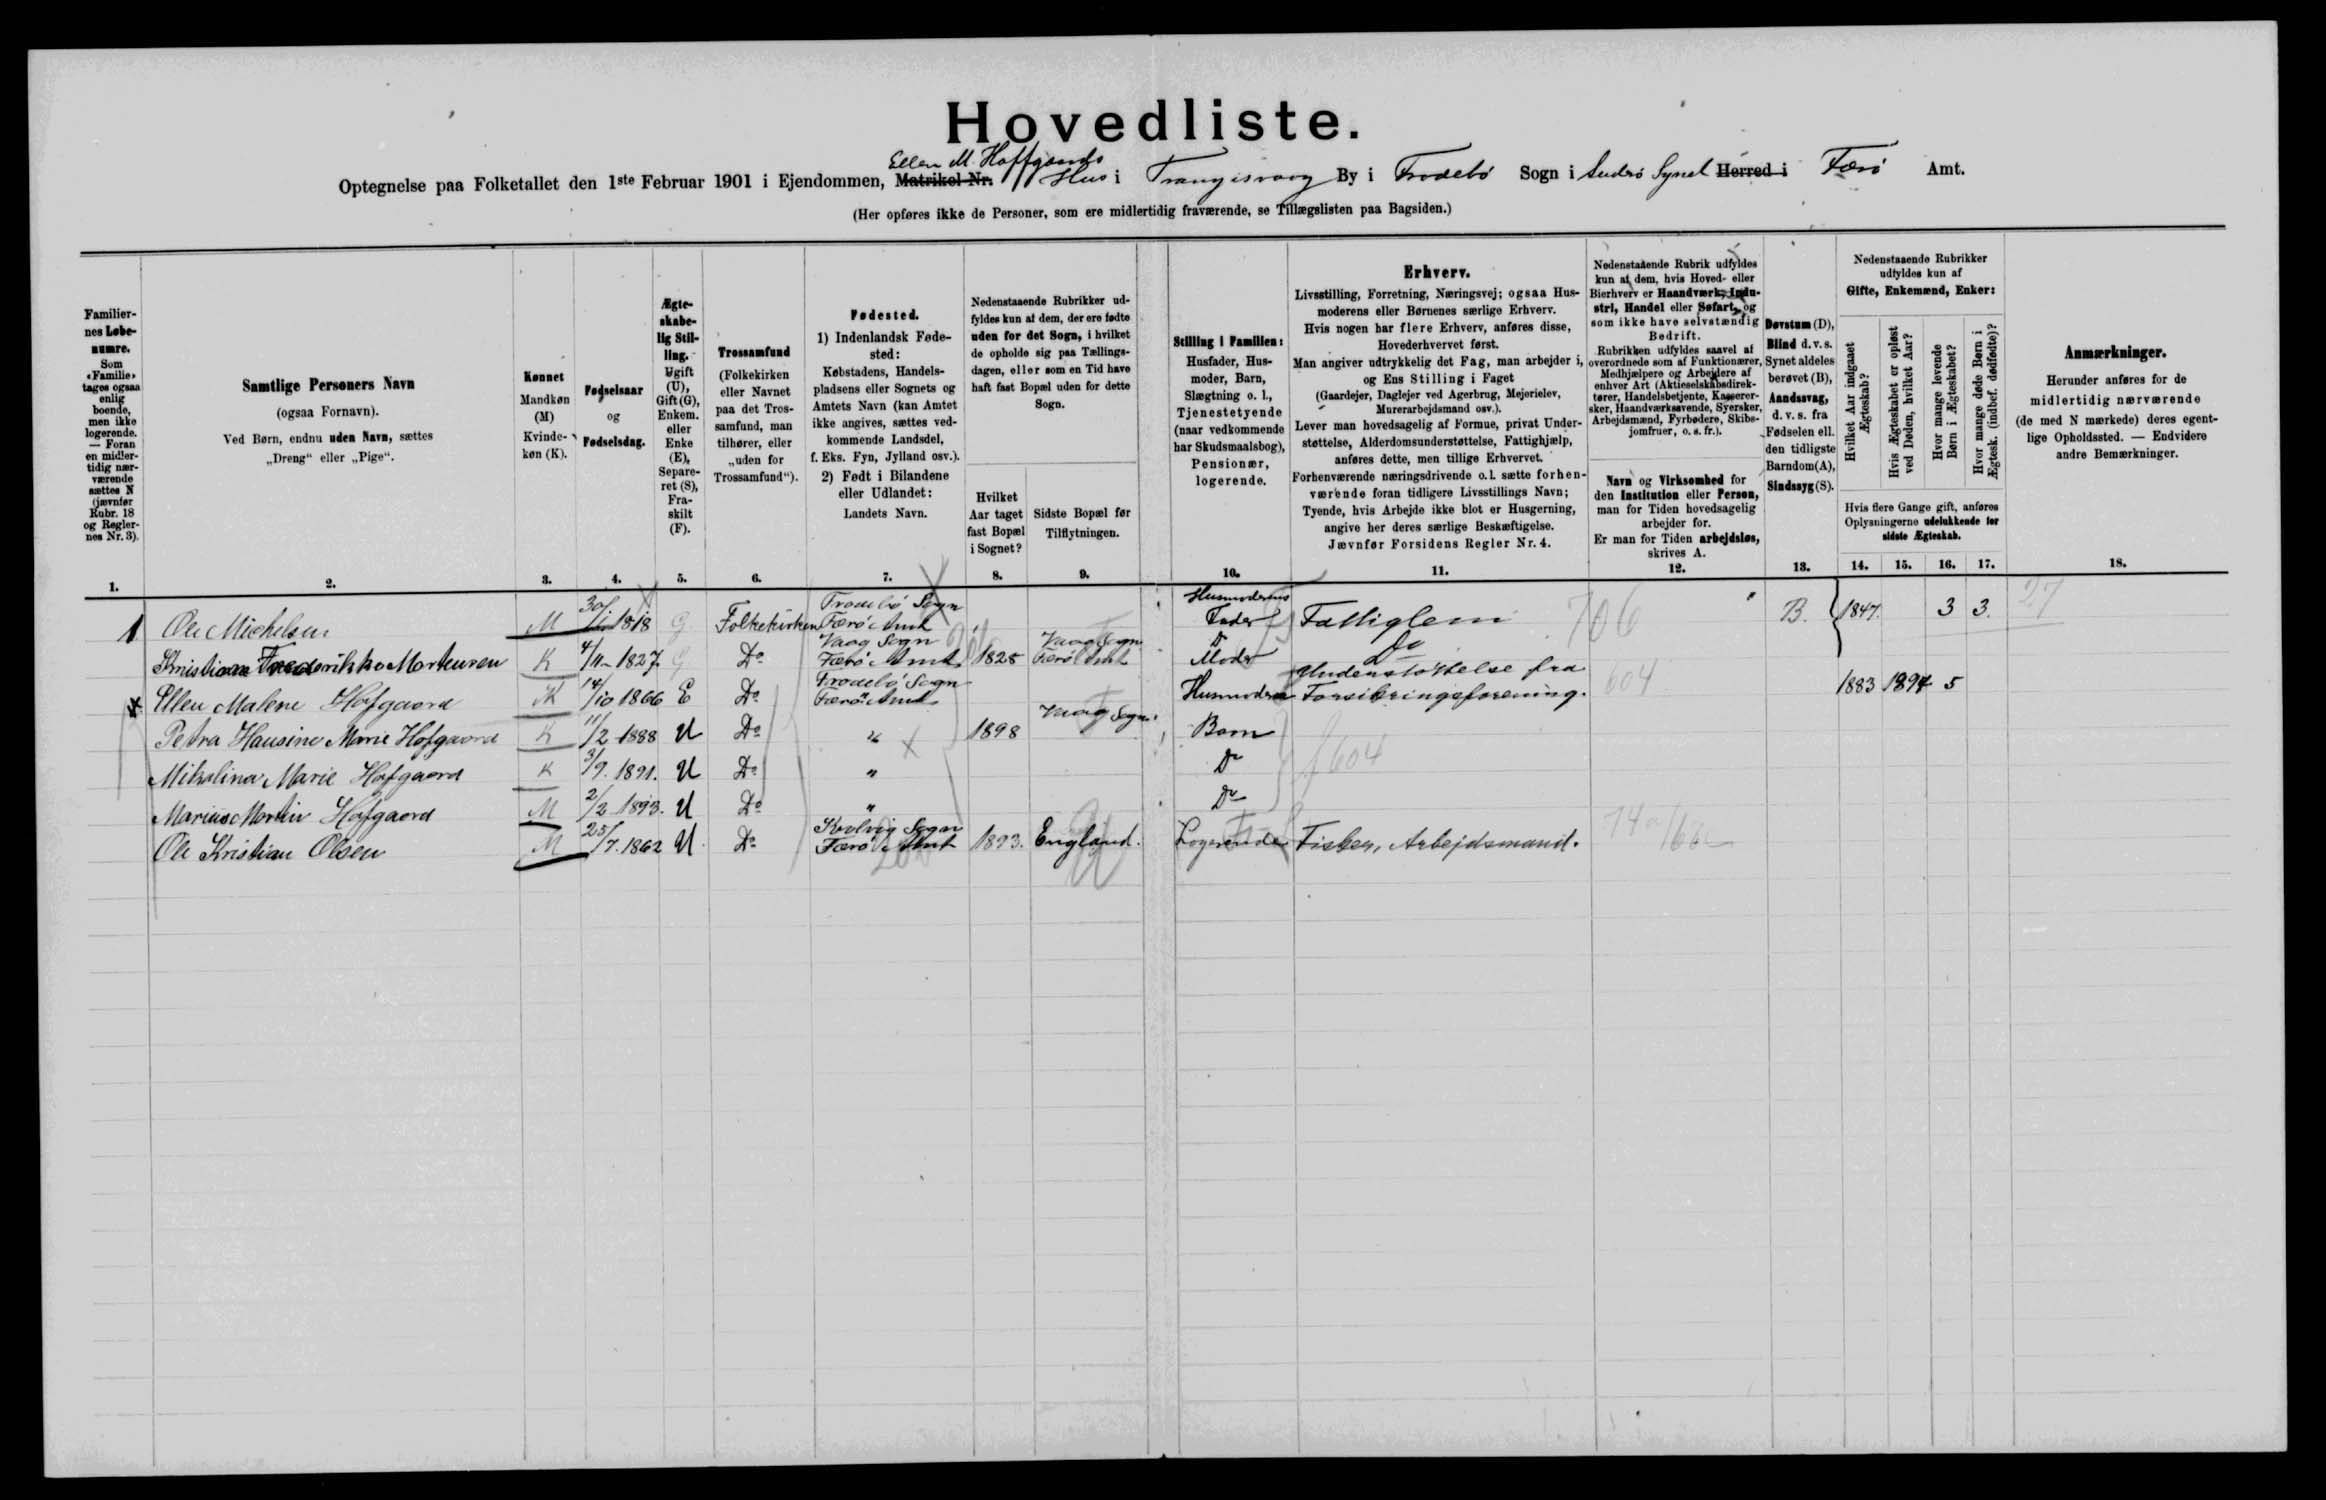 Hovedliste.
Ellen M. Hoffgaards
Optegnelse paa Folketallet den 1ste Februar 1901 i Ejendommen, Matrikel Nr. Hus i Trangisvaag By i Frodebø Sogn i Suderø Syssel Herred i Færø Amt.
(Her opføres ikke de Personer, som ere midlertidig fraværende, se Tillægslisten paa Bagsiden.)
Familier-
nes Løbe-
numre.
Som
«Familie»
tages ogsaa
enlig
boende,
men ikke
logerende.
— Foran
en midler-
tidig nær-
værende
sættes N
(jævnfør
Rubr. 18
og Regler-
nes Nr. 3).
1.
Samtlige Personers Navn
(ogsaa Fornavn).
Ved Børn, endnu uden Navn, sættes
„Dreng“ eller „Pige“.
2.
Kønnet
Mandkøn
(M)
Kvinde-
køn (K).
3.
Fødselsaar
og
Fødselsdag.
4.
Ægte-
skabe-
lig Stil-
ling.
Ugift
(U),
Gift (G),
Enkem.
eller
Enke
(E),
Separe-
ret (S),
Fra-
skilt
(F).
5.
Trossamfund
(Folkekirken
eller Navnet
paa det Tros-
samfund, man
tilhører, eller
„uden for
Trossamfund“).
6.
Fødested.
1) Indenlandsk Føde-
sted:
Købstadens, Handels-
pladsens eller Sognets og
Amtets Navn (kan Amtet
ikke angives, sættes ved-
kommende Landsdel,
f. Eks. Fyn, Jylland osv.).
2) Født i Bilandene
eller Udlandet:
Landets Navn.
7.
Nedenstaaende Rubrikker ud-
fyldes kun af dem, der ere fødte
uden for det Sogn, i hvilket
de opholde sig paa Tællings-
dagen, eller som en Tid have
haft fast Bopæl uden for dette
Sogn.
Hvilket
Aar taget
fast Bopæl
i Sognet?
8.
Sidste Bopæl før
Tilflytningen.
9.
Stilling i Familien:
Husfader, Hus-
moder, Barn,
Slægtning o. l.,
Tjenestetyende
(naar vedkommende
har Skudsmaalsbog),
Pensionær,
logerende.
10.
Erhverv.
Livsstilling, Forretning, Næringsvej; ogsaa Hus-
moderens eller Børnenes særlige Erhverv.
Hvis nogen har flere Erhverv, anføres disse,
Hovederhvervet først.
Man angiver udtrykkelig det Fag, man arbejder i,
og Ens Stilling i Faget
(Gaardejer, Daglejer ved Agerbrug, Mejerielev,
Murerarbejdsmand osv.).
Lever man hovedsagelig af Formue, privat Under-
støttelse, Alderdomsunderstøttelse, Fattighjælp,
anføres dette, men tillige Erhvervet.
Forhenværende næringsdrivende o. l. sætte forhen-
værende foran tidligere Livsstillings Navn;
Tyende, hvis Arbejde ikke blot er Husgerning,
angive her deres særlige Beskæftigelse.
Jævnfør Forsidens Regler Nr. 4.
11.
Nedenstaaende Rubrik udfyldes
kun af dem, hvis Hoved- eller
Bierhverv er Haandværk, Indu-
stri, Handel eller Søfart, og
som ikke have selvstændig
Bedrift.
Rubrikken udfyldes saavel af
overordnede som af Funktionærer,
Medhjælpere og Arbejdere af
enhver Art (Aktieselskabsdirek-
tører, Handelsbetjente, Kasserer-
sker, Haandværkssvende, Syersker,
Arbejdsmænd, Fyrbødere, Skibs-
jomfruer, o. s. fr.).
Navn og Virksomhed for
den Institution eller Person,
man for Tiden hovedsagelig
arbejder for.
Er man for Tiden arbejdsløs,
skrives A.
12.
Døvstum (D),
Blind d. v. s.
Synet aldeles
berøvet (B),
Aandssvag,
d. v. s. fra
Fødselen ell.
den tidligste
Barndom (A),
Sindssyg (S).
13.
Nedenstaaende Rubrikker
udfyldes kun af
Gifte, Enkemænd, Enker:
Hvilket Aar indgaaet
Ægteskab?
Hvis Ægteskabet er opløst
ved Døden, hvilket Aar?
Hvor mange levende
Børn i Ægteskabet?
Hvor mange døde Børn i
Ægtesk. (indbef. dødfødte)?
Hvis flere Gange gift, anføres
Oplysningerne udelukkende for
sidste Ægteskab.
14. 15. 16. 17.
Anmærkninger.
Herunder anføres for de
midlertidig nærværende
(de med N mærkede) deres egent-
lige Opholdssted. — Endvidere
andre Bemærkninger.
18.
1 Ole Michelsen M 30/1 1818 G Folkekirken Frodebø Sogn Færø Amt Husmoderens Fader Fattiglem 706 B. 1847. 3 3. 27
Kristiane Frederikke Mortensen K 4/11 1827 G Do Vaag Sogn Færø Amt 1828 Vaag Sogn Færø Amt Do Moder Do
Ellen Malene Hofgaard K 14/10 1866 E Do Frodebø Sogn Færø Amt Husmoder Understøttelse fra Forsikringsforening. 604 1883 1894 5
Petra Hansine Marie Hofgaard K 11/2 1888 U Do " 1898 Vaag Sogn Barn
Mikalina Marie Hofgaard K 3/9. 1891. U Do " Do 604
Marius Martin Hofgaard M 2/2 1893. U Do " Do
Ole Kristian Olsen M 25/7. 1862 U. Do Kvalvig Sogn Færø Amt 1893. England. Logerende Fisker, Arbejdsmand.